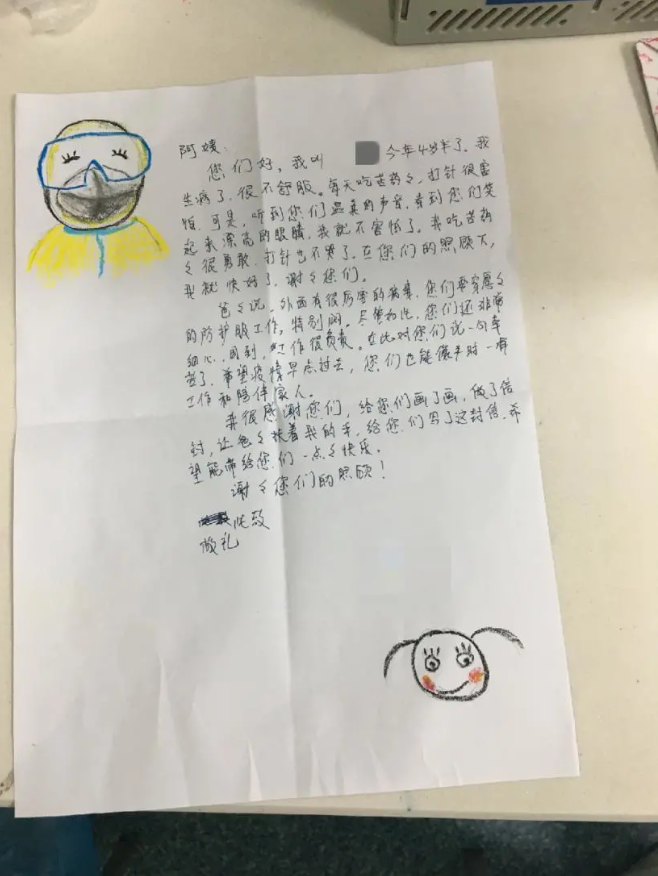 阿姨：
您们好，我叫 今年4岁半了。我
生病了，很不舒服。每天吃苦药々，打针很害
怕，可是，听到您们温柔的声音，看到您们笑
起来漂亮的眼睛，我就不害怕了。我吃苦药
々很勇敢，打针也不哭了。在您们的照顾下，
我就快好了，谢々您们。
爸々说，外面有很厉害的病毒，您们要穿厚々
的防护服工作，特别闷。尽管如此，您们还非常
细心、周到，工作很负责。在此对您们说一句辛
苦了，希望疫情早点过去，您们也能像平时一样
工作和陪伴家人。
我很感谢您们，给您们画了画，做了信
封，让爸々扶着我的手，给您们写了这封信，希
望能带给您们一点々快乐。
谢々您们的照顾！
此致
敬礼